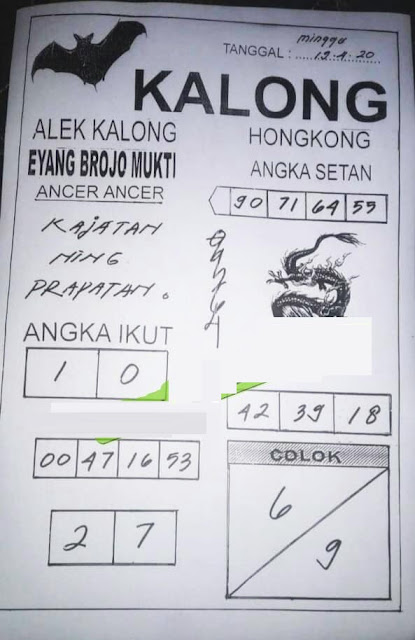 minggu
TANGGAL : 12-4-20
KALONG
ALEK KALONG
EYANG BROJO MUKTI
ANCER ANCER
KAJATAN
NING
PRAPATAN.
ANGKA IKUT
1 0
00 47 16 53
2 7
HONGKONG
ANGKA SETAN
90 71 64 55
42 39 18
COLOK
6
9